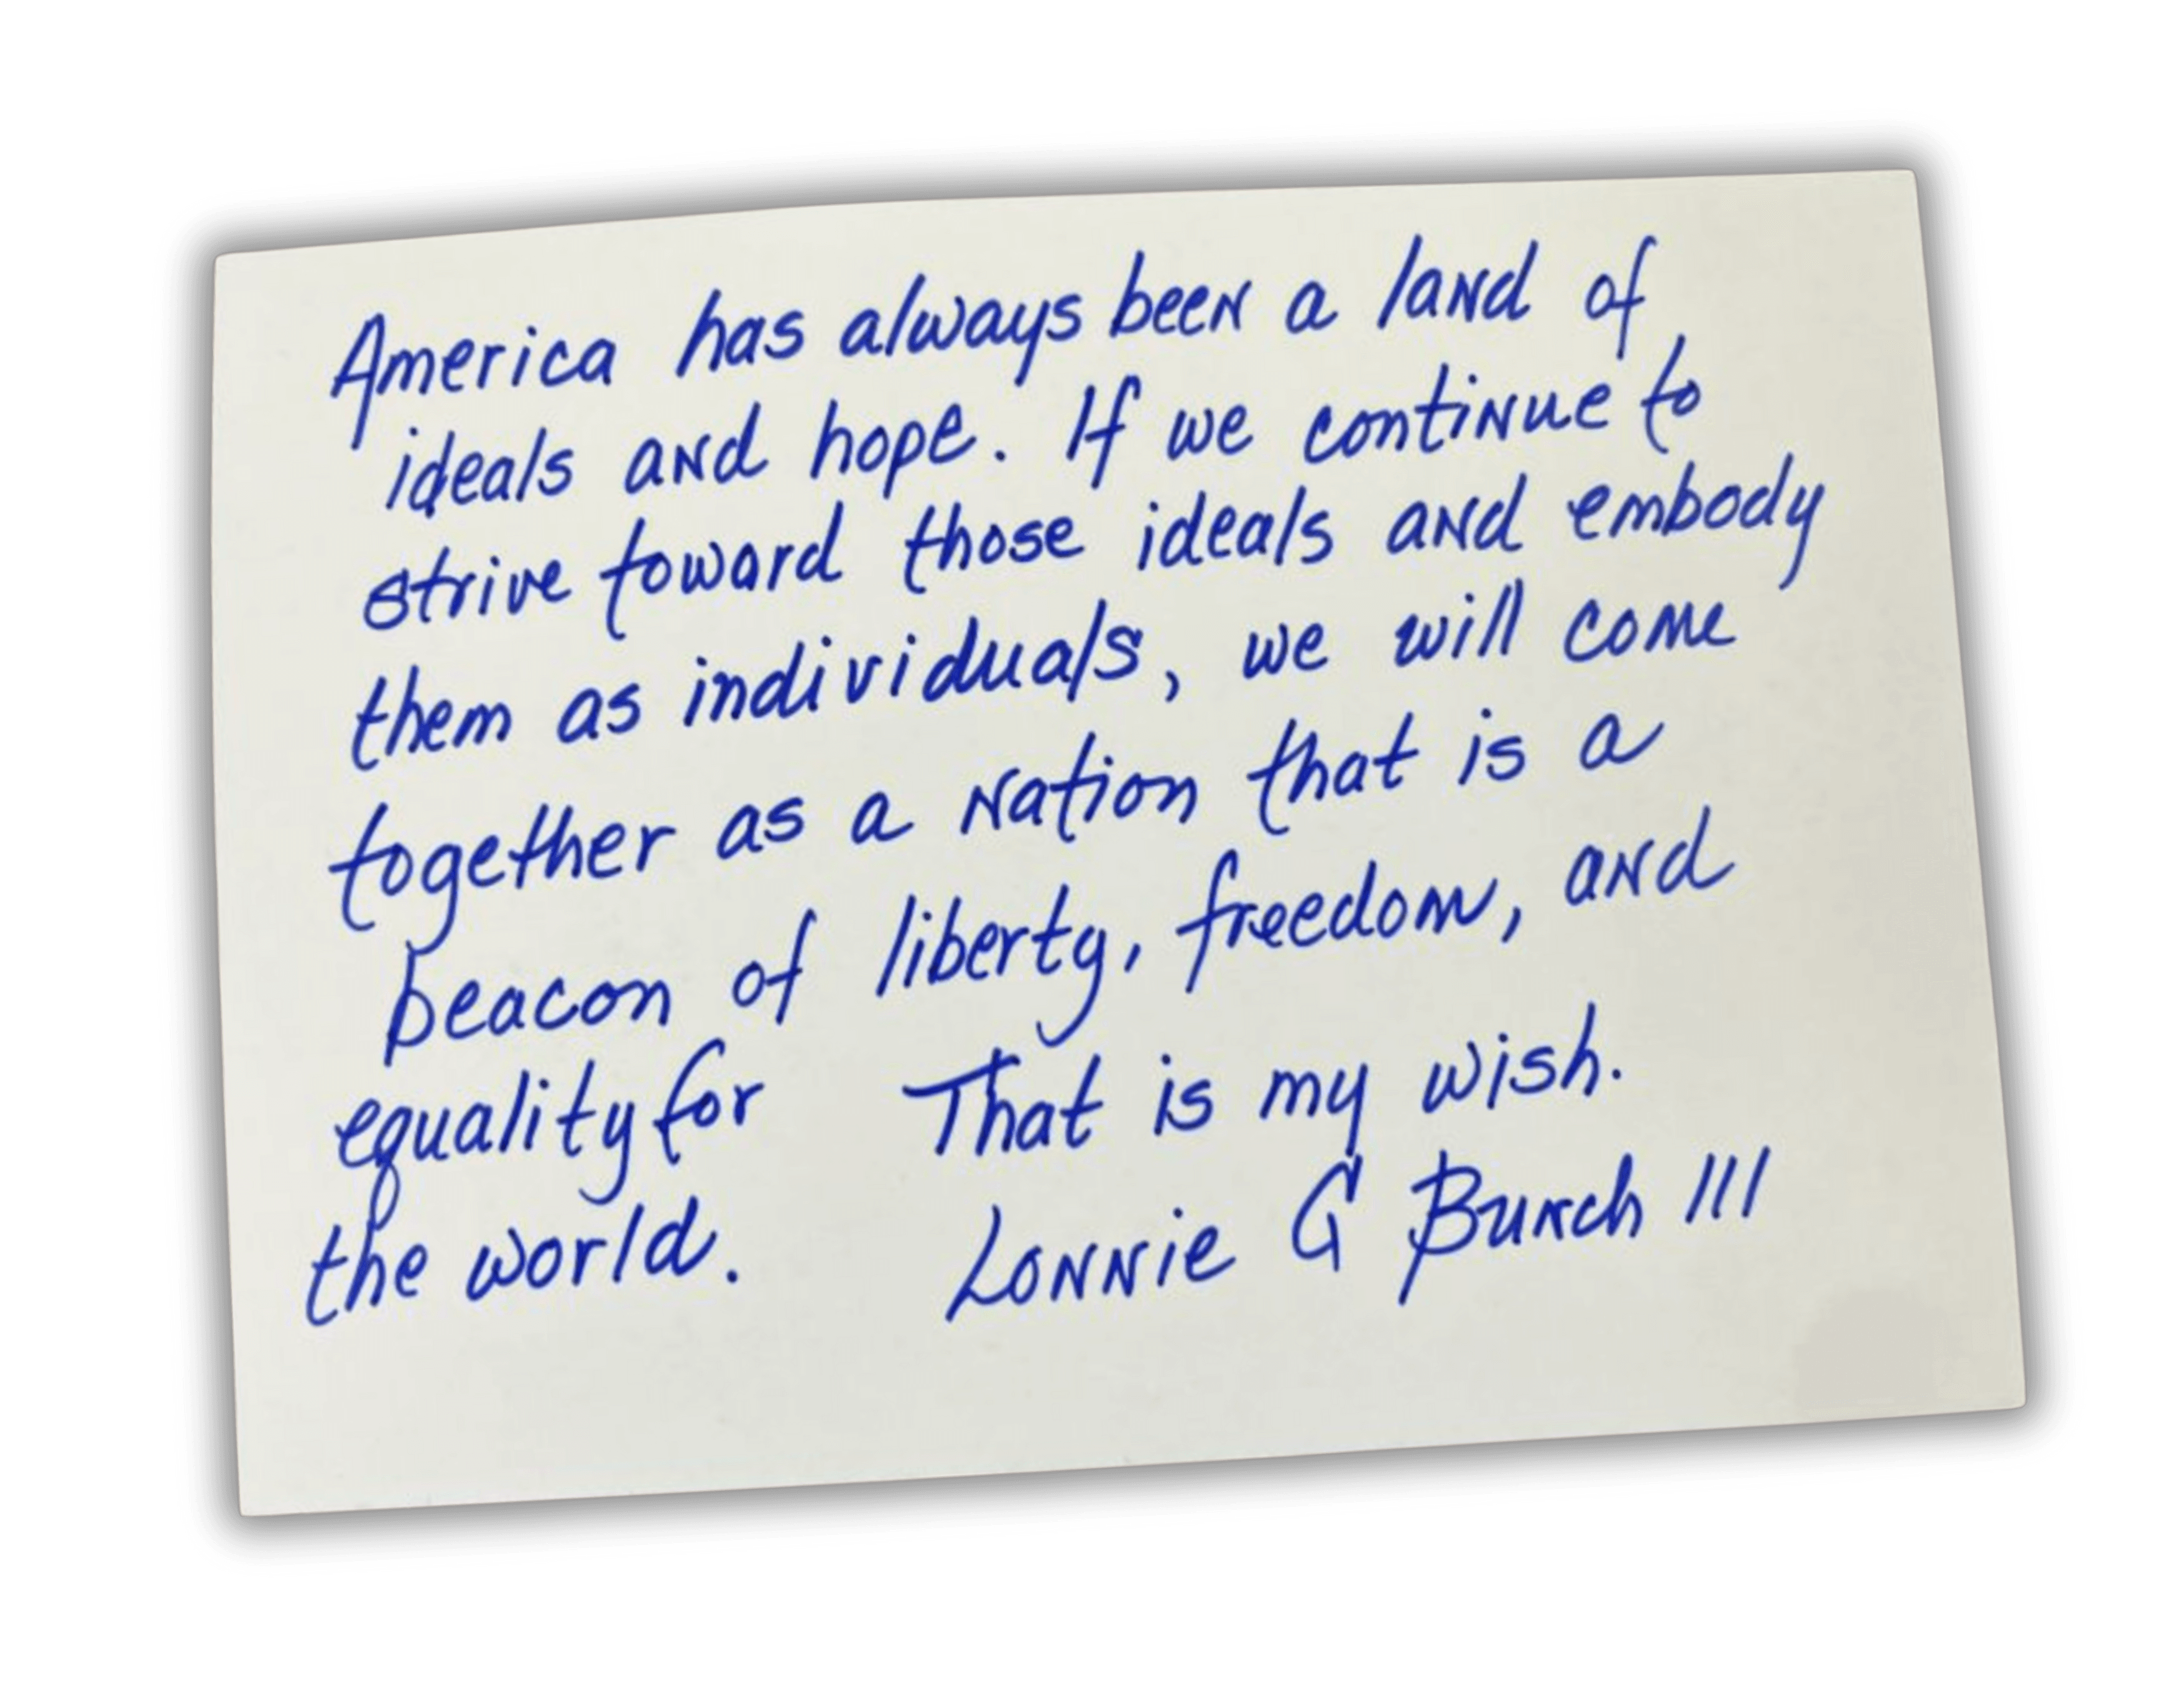 America has always been a land of
ideals and hope. If we continue to
strive toward those ideals and embody
them as individuals, we will come
together as a nation that is a
beacon of liberty, freedom, and
equality for
the world.
That is my wish.
Lonnie G Bunch III